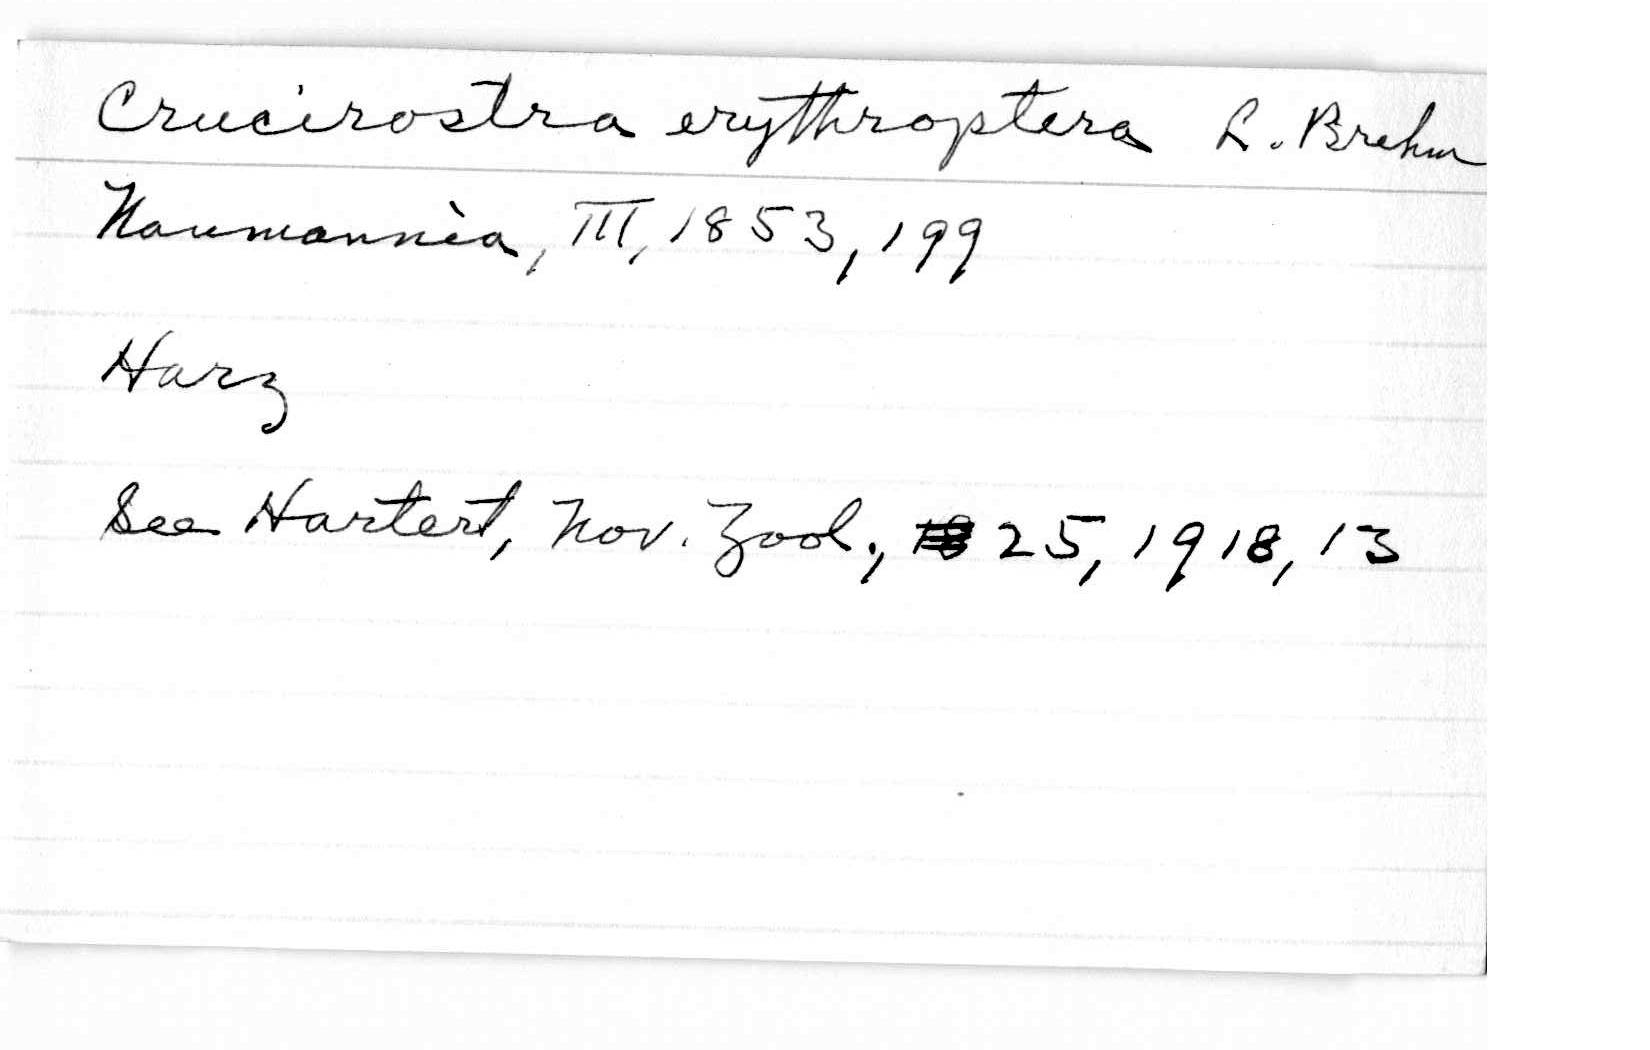 Crucirostra erythroptera L. Brehm
Naumannia, III, 1853, 199
Harz
See Hartert, Nov. Zool., 25, 1918, 13